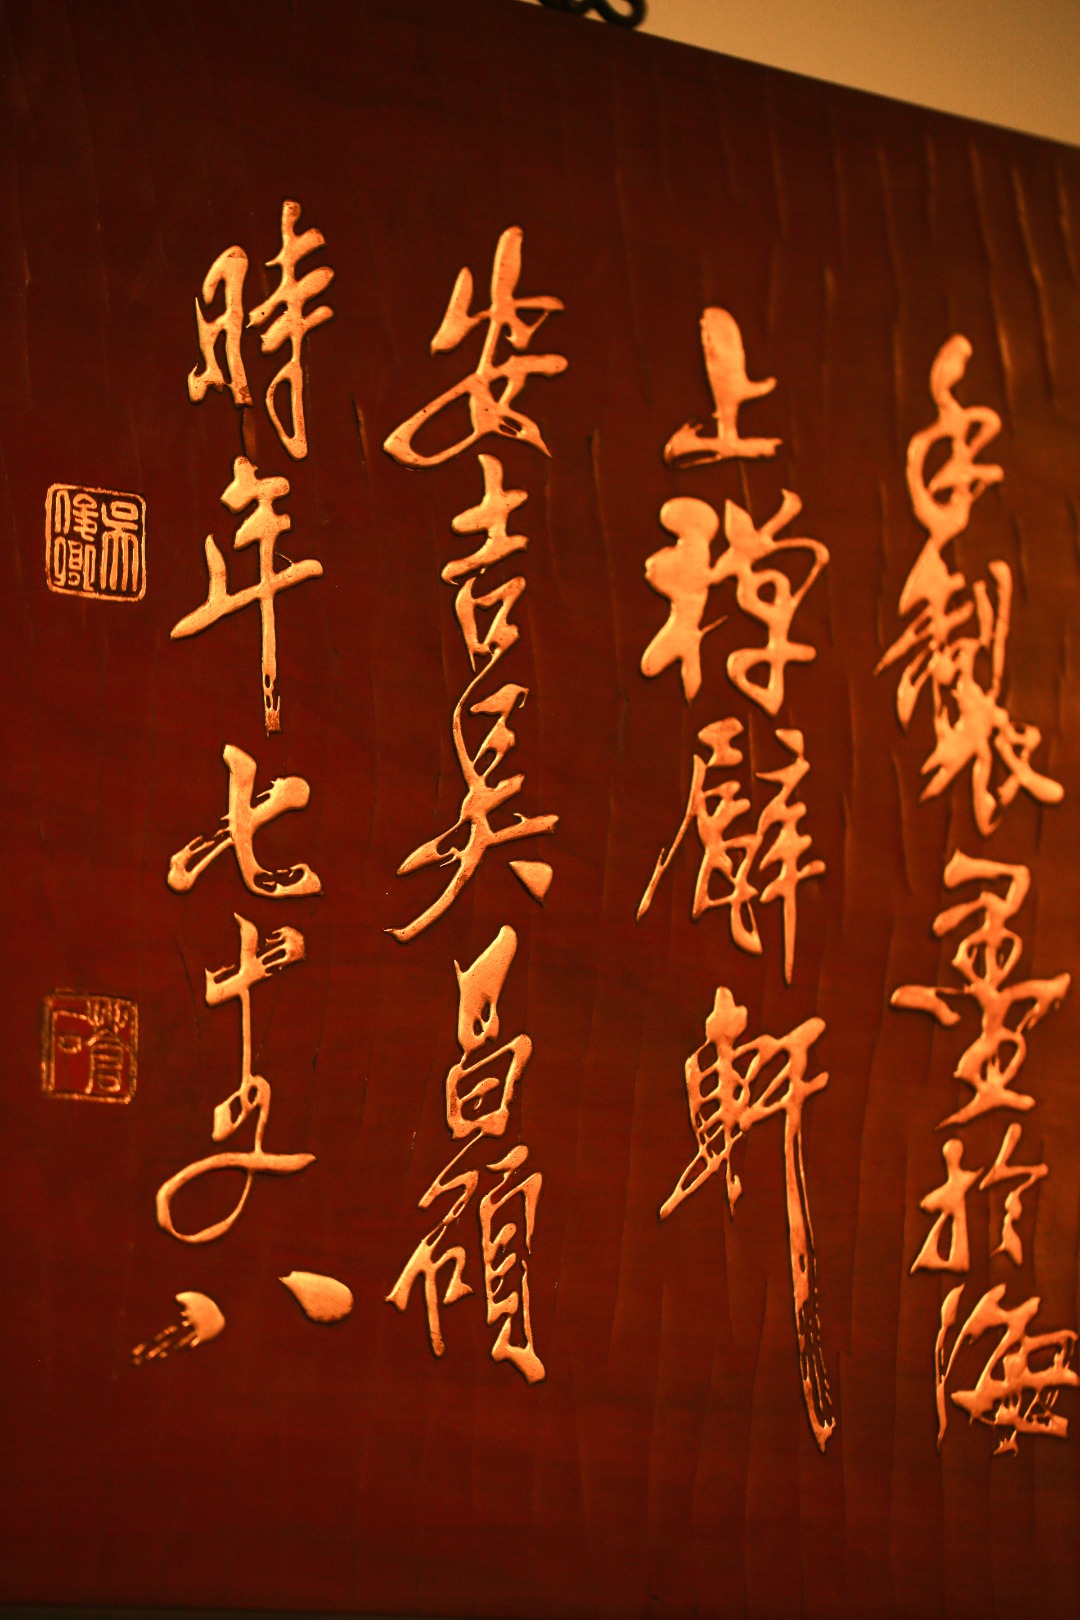 手製墨於海
上禪甓軒
安吉吳昌碩
時年七十有八
吳俊卿
蒼石